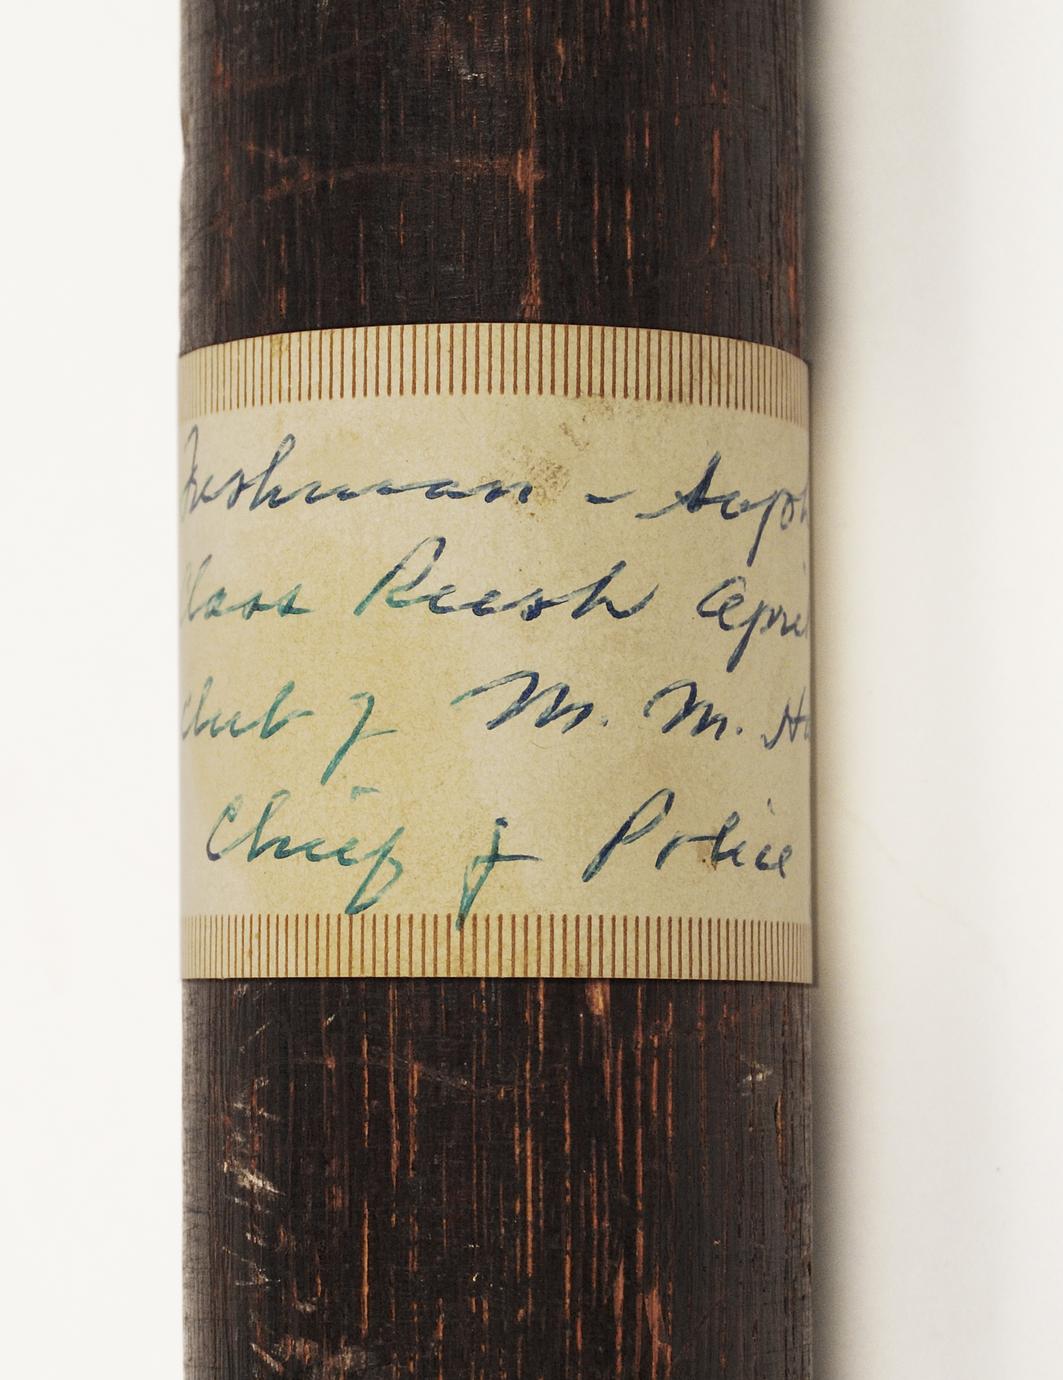 Freshman - Soph
Class Rush Apri
Club of M. M. Ho
Chief of Police